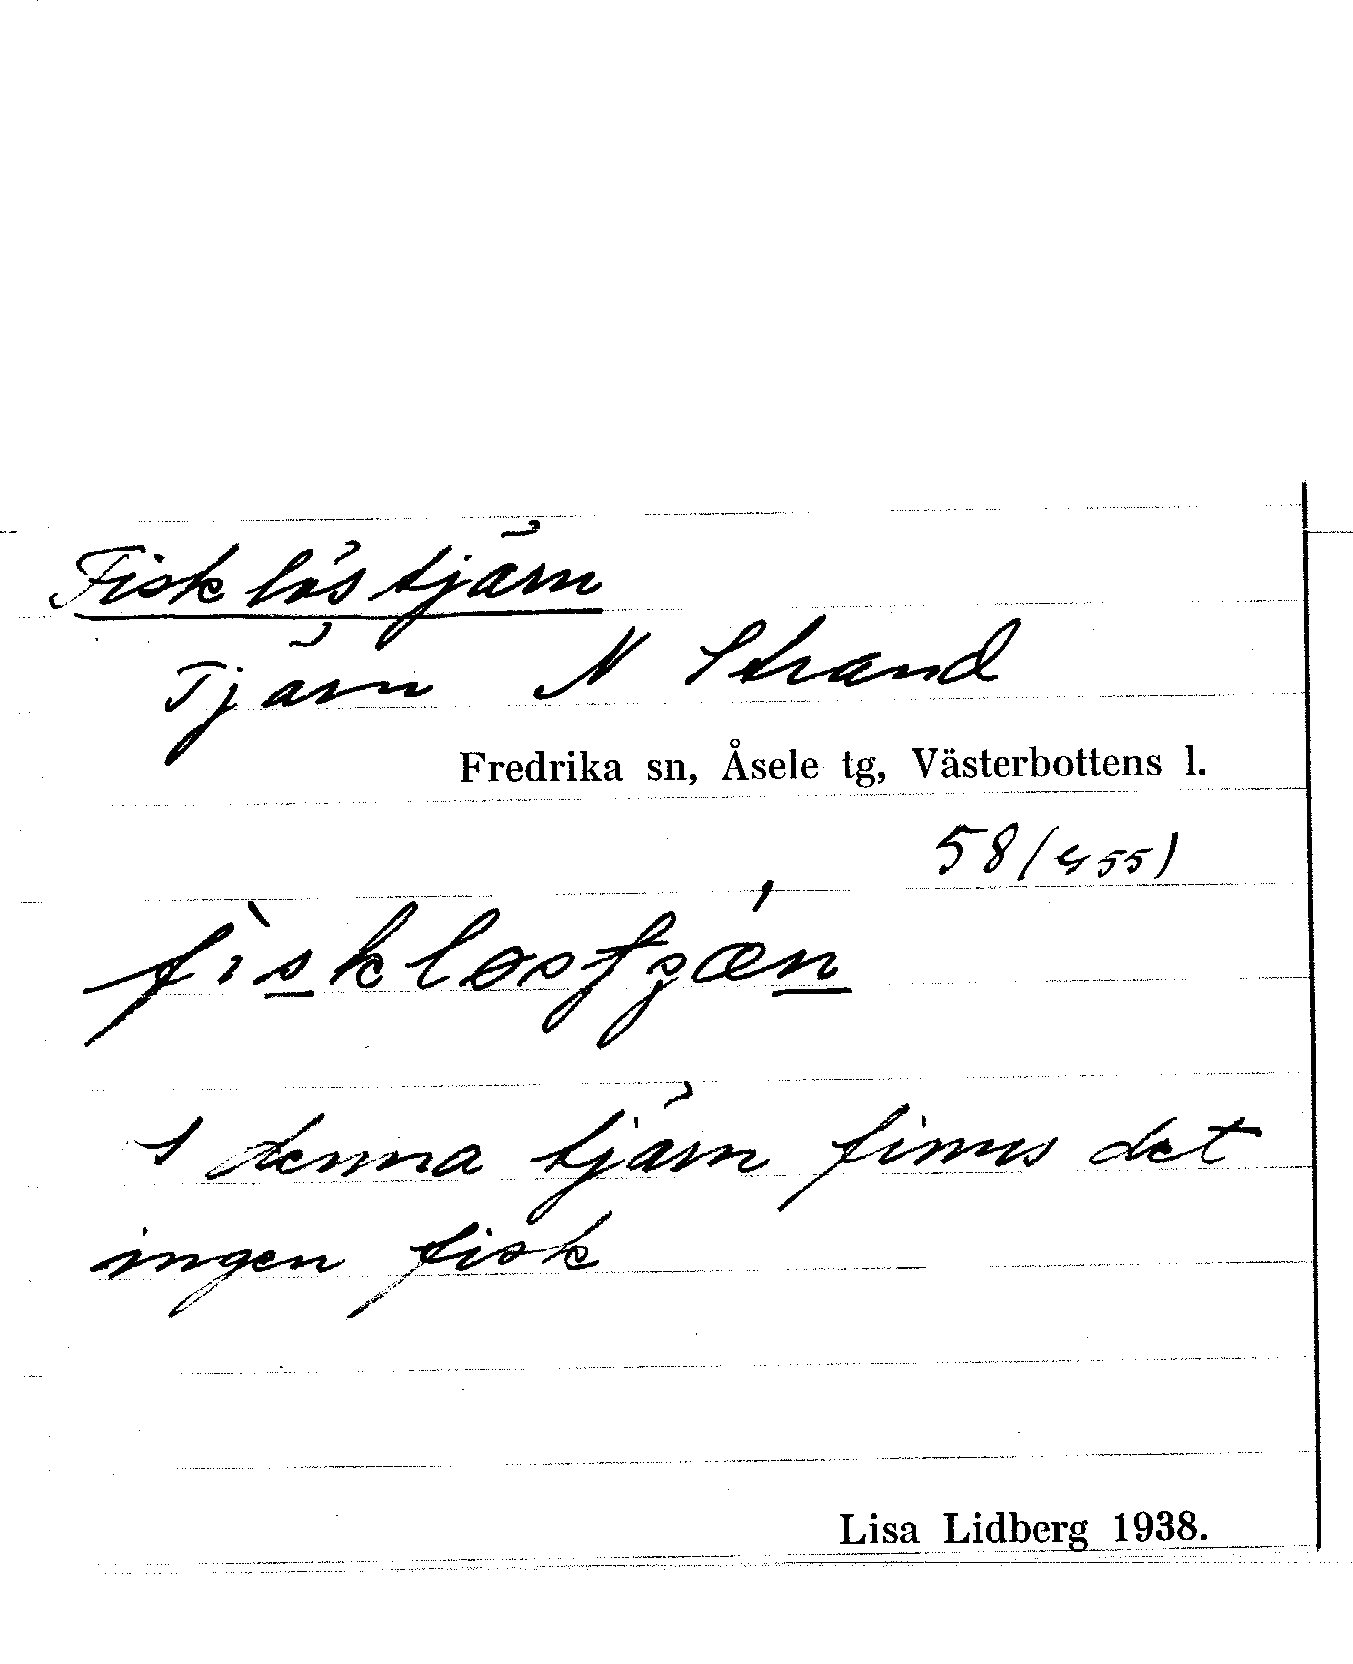 Fisklöstjärn
Tjärn N Strand
Fredrika sn, Åsele tg, Västerbottens l.
58 (455)
I denna tjärn finns det
ingen fisk
Lisa Lidberg 1938.